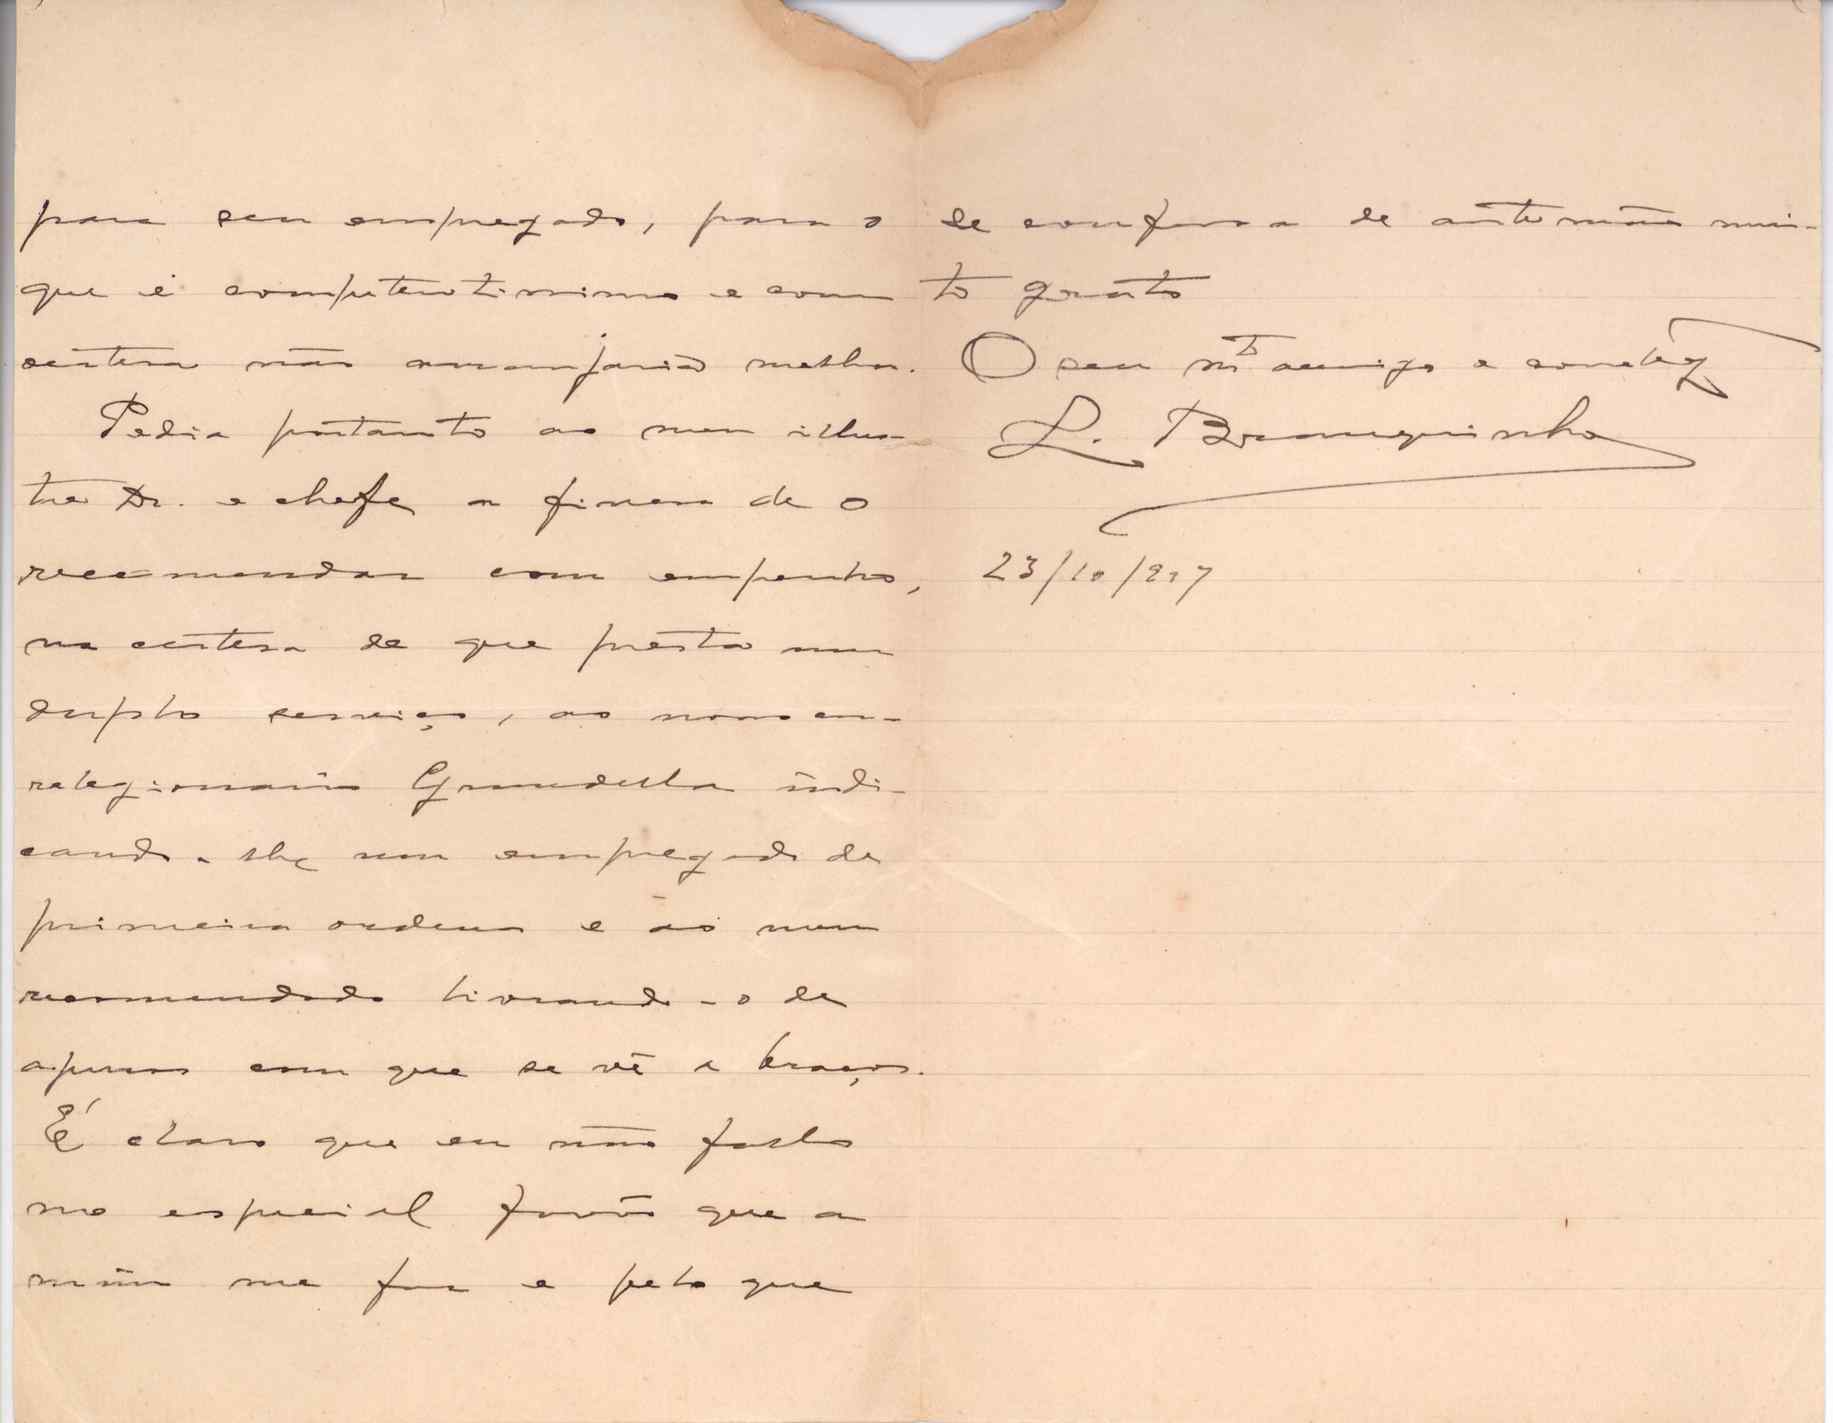 para seu empregado, para o
que é competentissimo e com
certesa não arranjaria melhor.
Pedia portanto ao meu illus-
tre Dr. e chefe a finesa de o
recommendar com empenho,
na certesa de que presta um
duplo serviço, ao nosso cor-
religionario Grandella indi-
cando-lhe um empregado de
primeira ordem e ao meu
recommendado livrando-o de
apuros com que se vê a braços.
É claro que eu não fallo
no especial favôr que a
mim me faz e pelo que
se confessa de antemão mui-
to grato
O seu mto amigo e correlegº
L. Branquinho
23/10/907